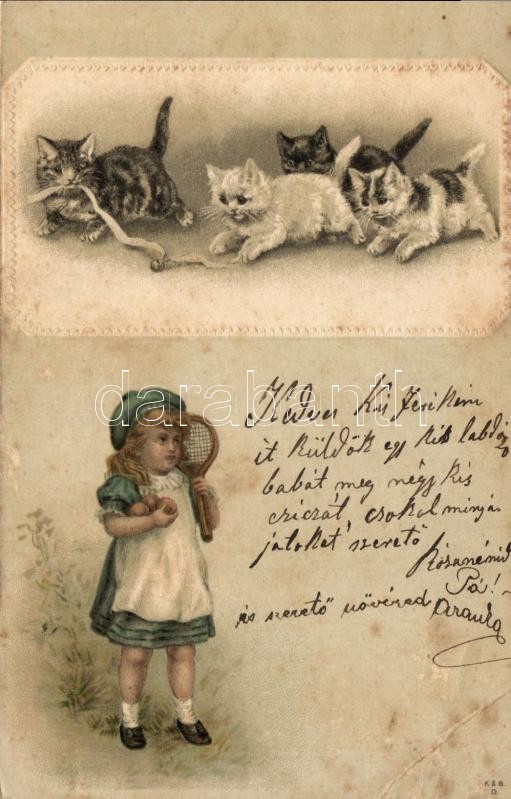 darabanth
Kedves Kis Ferikém
it küldök egy kis labdázó
babát meg négy kis
cziczát, csokol minyá-
jatokat szerető
Rózsanénid
Pá!-
és szerető nővéred Aranka
K & B.
D.